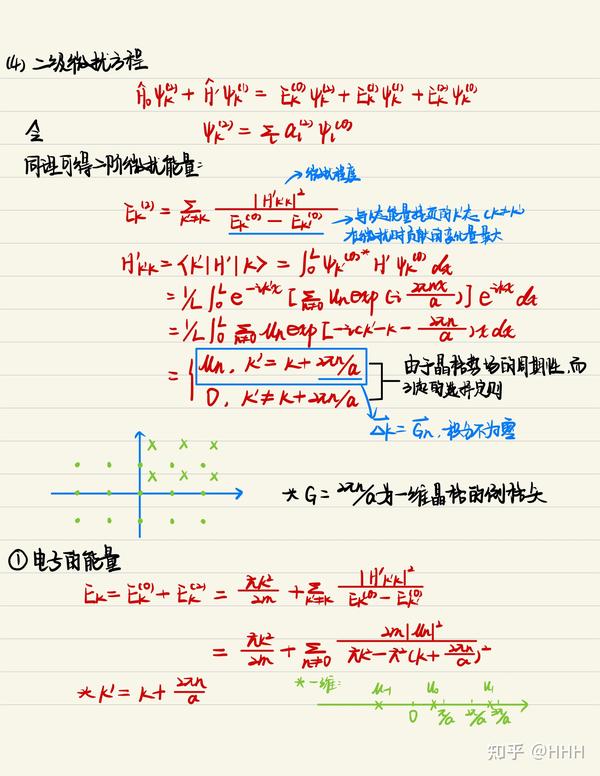 (4) 二级微扰方程
Ĥ₀ψₖ⁽²⁾ + Ĥ'ψₖ⁽¹⁾ = Eₖ⁽⁰⁾ψₖ⁽²⁾ + Eₖ⁽¹⁾ψₖ⁽¹⁾ + Eₖ⁽²⁾ψₖ⁽⁰⁾
令 ψₖ⁽²⁾ = Σ aᵢ⁽²⁾ψᵢ⁽⁰⁾
同理可得二阶微扰能量:
→微扰程度
Eₖ⁽²⁾ = Σ_{k'≠k} |H'k'k|² / (Eₖ⁽⁰⁾ - Eₖ'⁽⁰⁾)
→与k态能量接近的k'态 (k≠k')
在微扰时贡献的变化量最大
H'k'k = <k'|H'|k> = ∫₀ᴸ ψₖ'⁽⁰⁾* H' ψₖ⁽⁰⁾ dx
= 1/L ∫₀ᴸ e^{-ik'x} [Σ_{n≠0} Un exp(i 2πnx/a)] e^{ikx} dx
= 1/L ∫₀ᴸ Σ_{n≠0} Un exp[-i(k'-k-2πn/a)x dx
= { Un, k' = k + 2πn/a
0, k' ≠ k + 2πn/a
由于晶格势场的周期性,而
引起的选择定则
Δk = Gn, 积分不为零
* G = 2πn/a为一维晶格的倒格矢
① 电子的能量
Eₖ = Eₖ⁽⁰⁾ + Eₖ⁽²⁾ = ħk²/2m + Σ_{k'≠k} |H'k'k|² / (Eₖ⁽⁰⁾ - Eₖ'⁽⁰⁾)
= ħk²/2m + Σ_{n≠0} 2m|Un|² / (ħk² - ħ²(k + 2πn/a)²)
* k' = k + 2πn/a
*一维:
U₋₁ U₀ U₁
0 π/a 2π/a 3π/a
知乎 @HHH